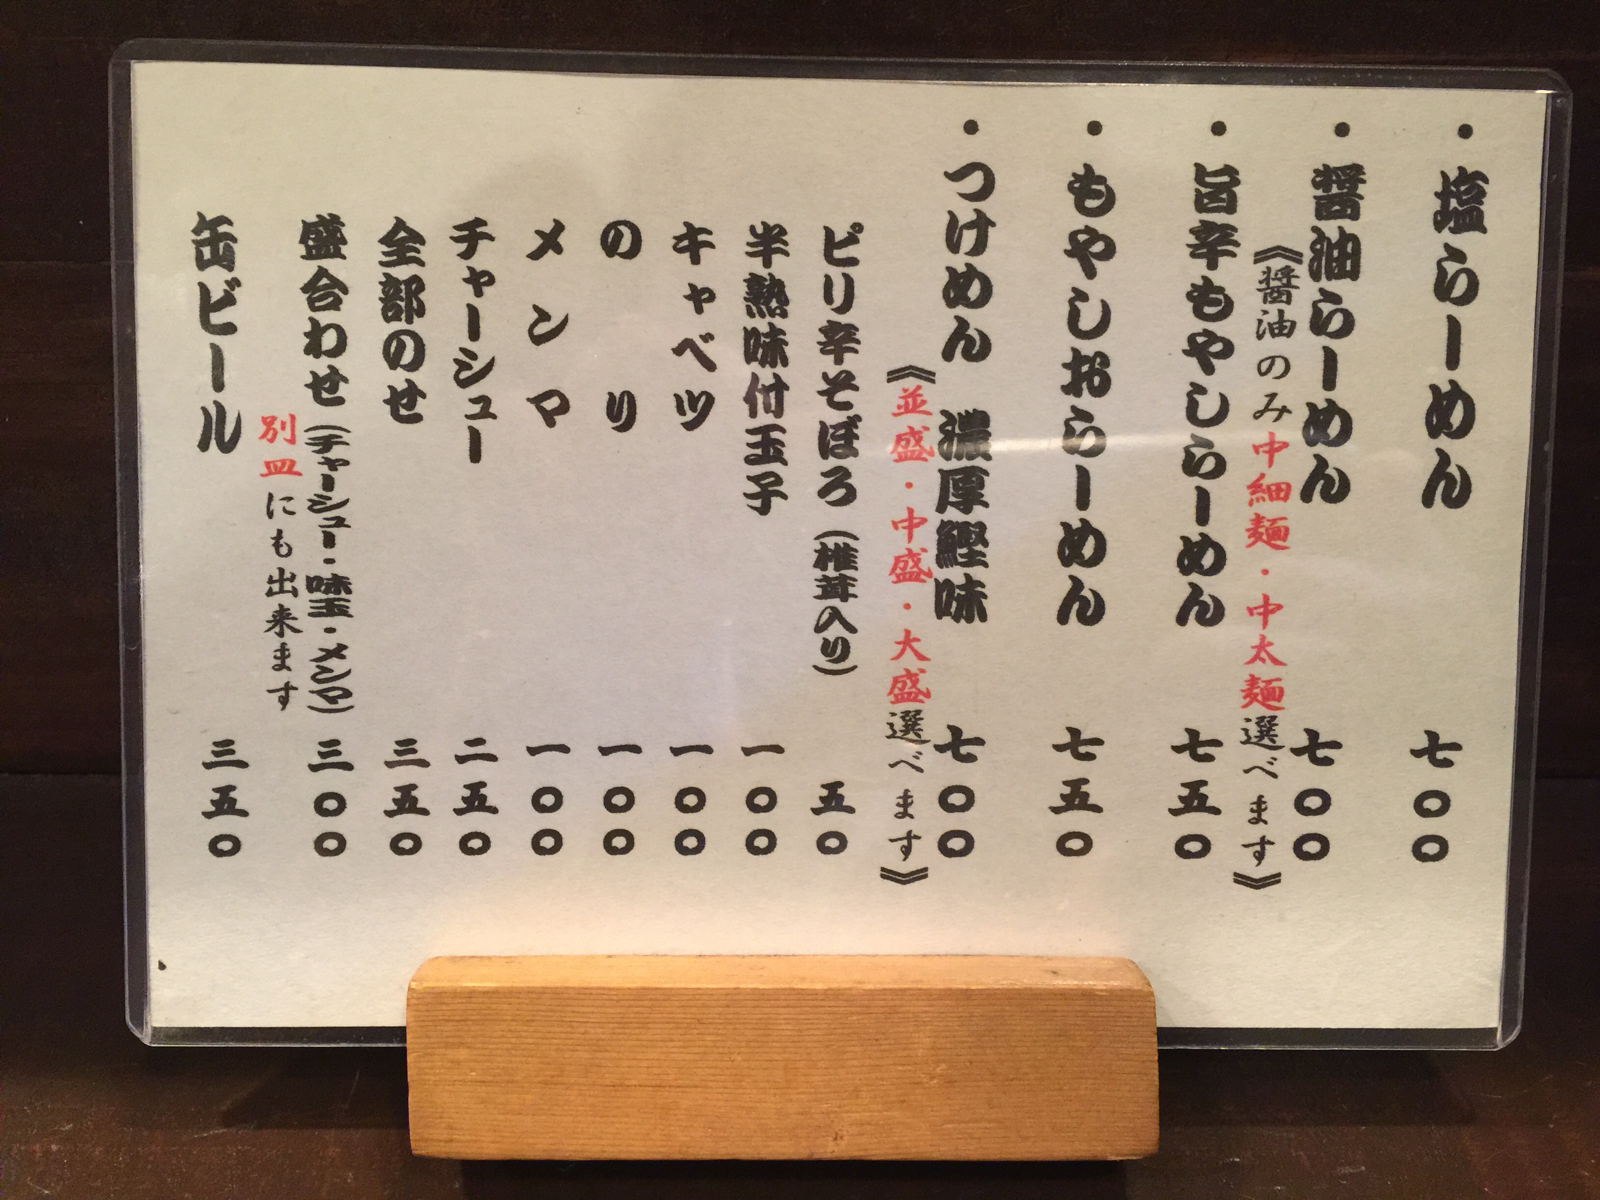 ・塩らーめん 七〇〇
・醤油らーめん 七〇〇
《醤油のみ中細麺・中太麺選べます》
・旨辛もやしらーめん 七五〇
・もやしおらーめん 七五〇
・つけめん 濃厚鰹味 七〇〇
《並盛・中盛・大盛選べます》
ピリ辛そぼろ（椎茸入り） 五〇
半熟味付玉子 一〇〇
キャベツ 一〇〇
のり 一〇〇
メンマ 一〇〇
チャーシュー 二五〇
全部のせ 三五〇
盛合わせ（チャーシュー・味玉・メンマ） 三〇〇
別皿にも出来ます
缶ビール 三五〇